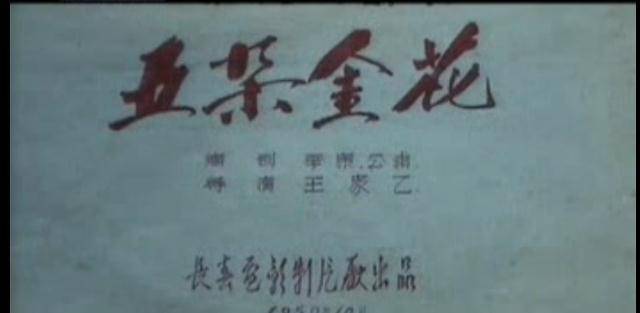 五朵金花
编剧 季康.公浦
导演 王家乙
長春电影制片厰出品